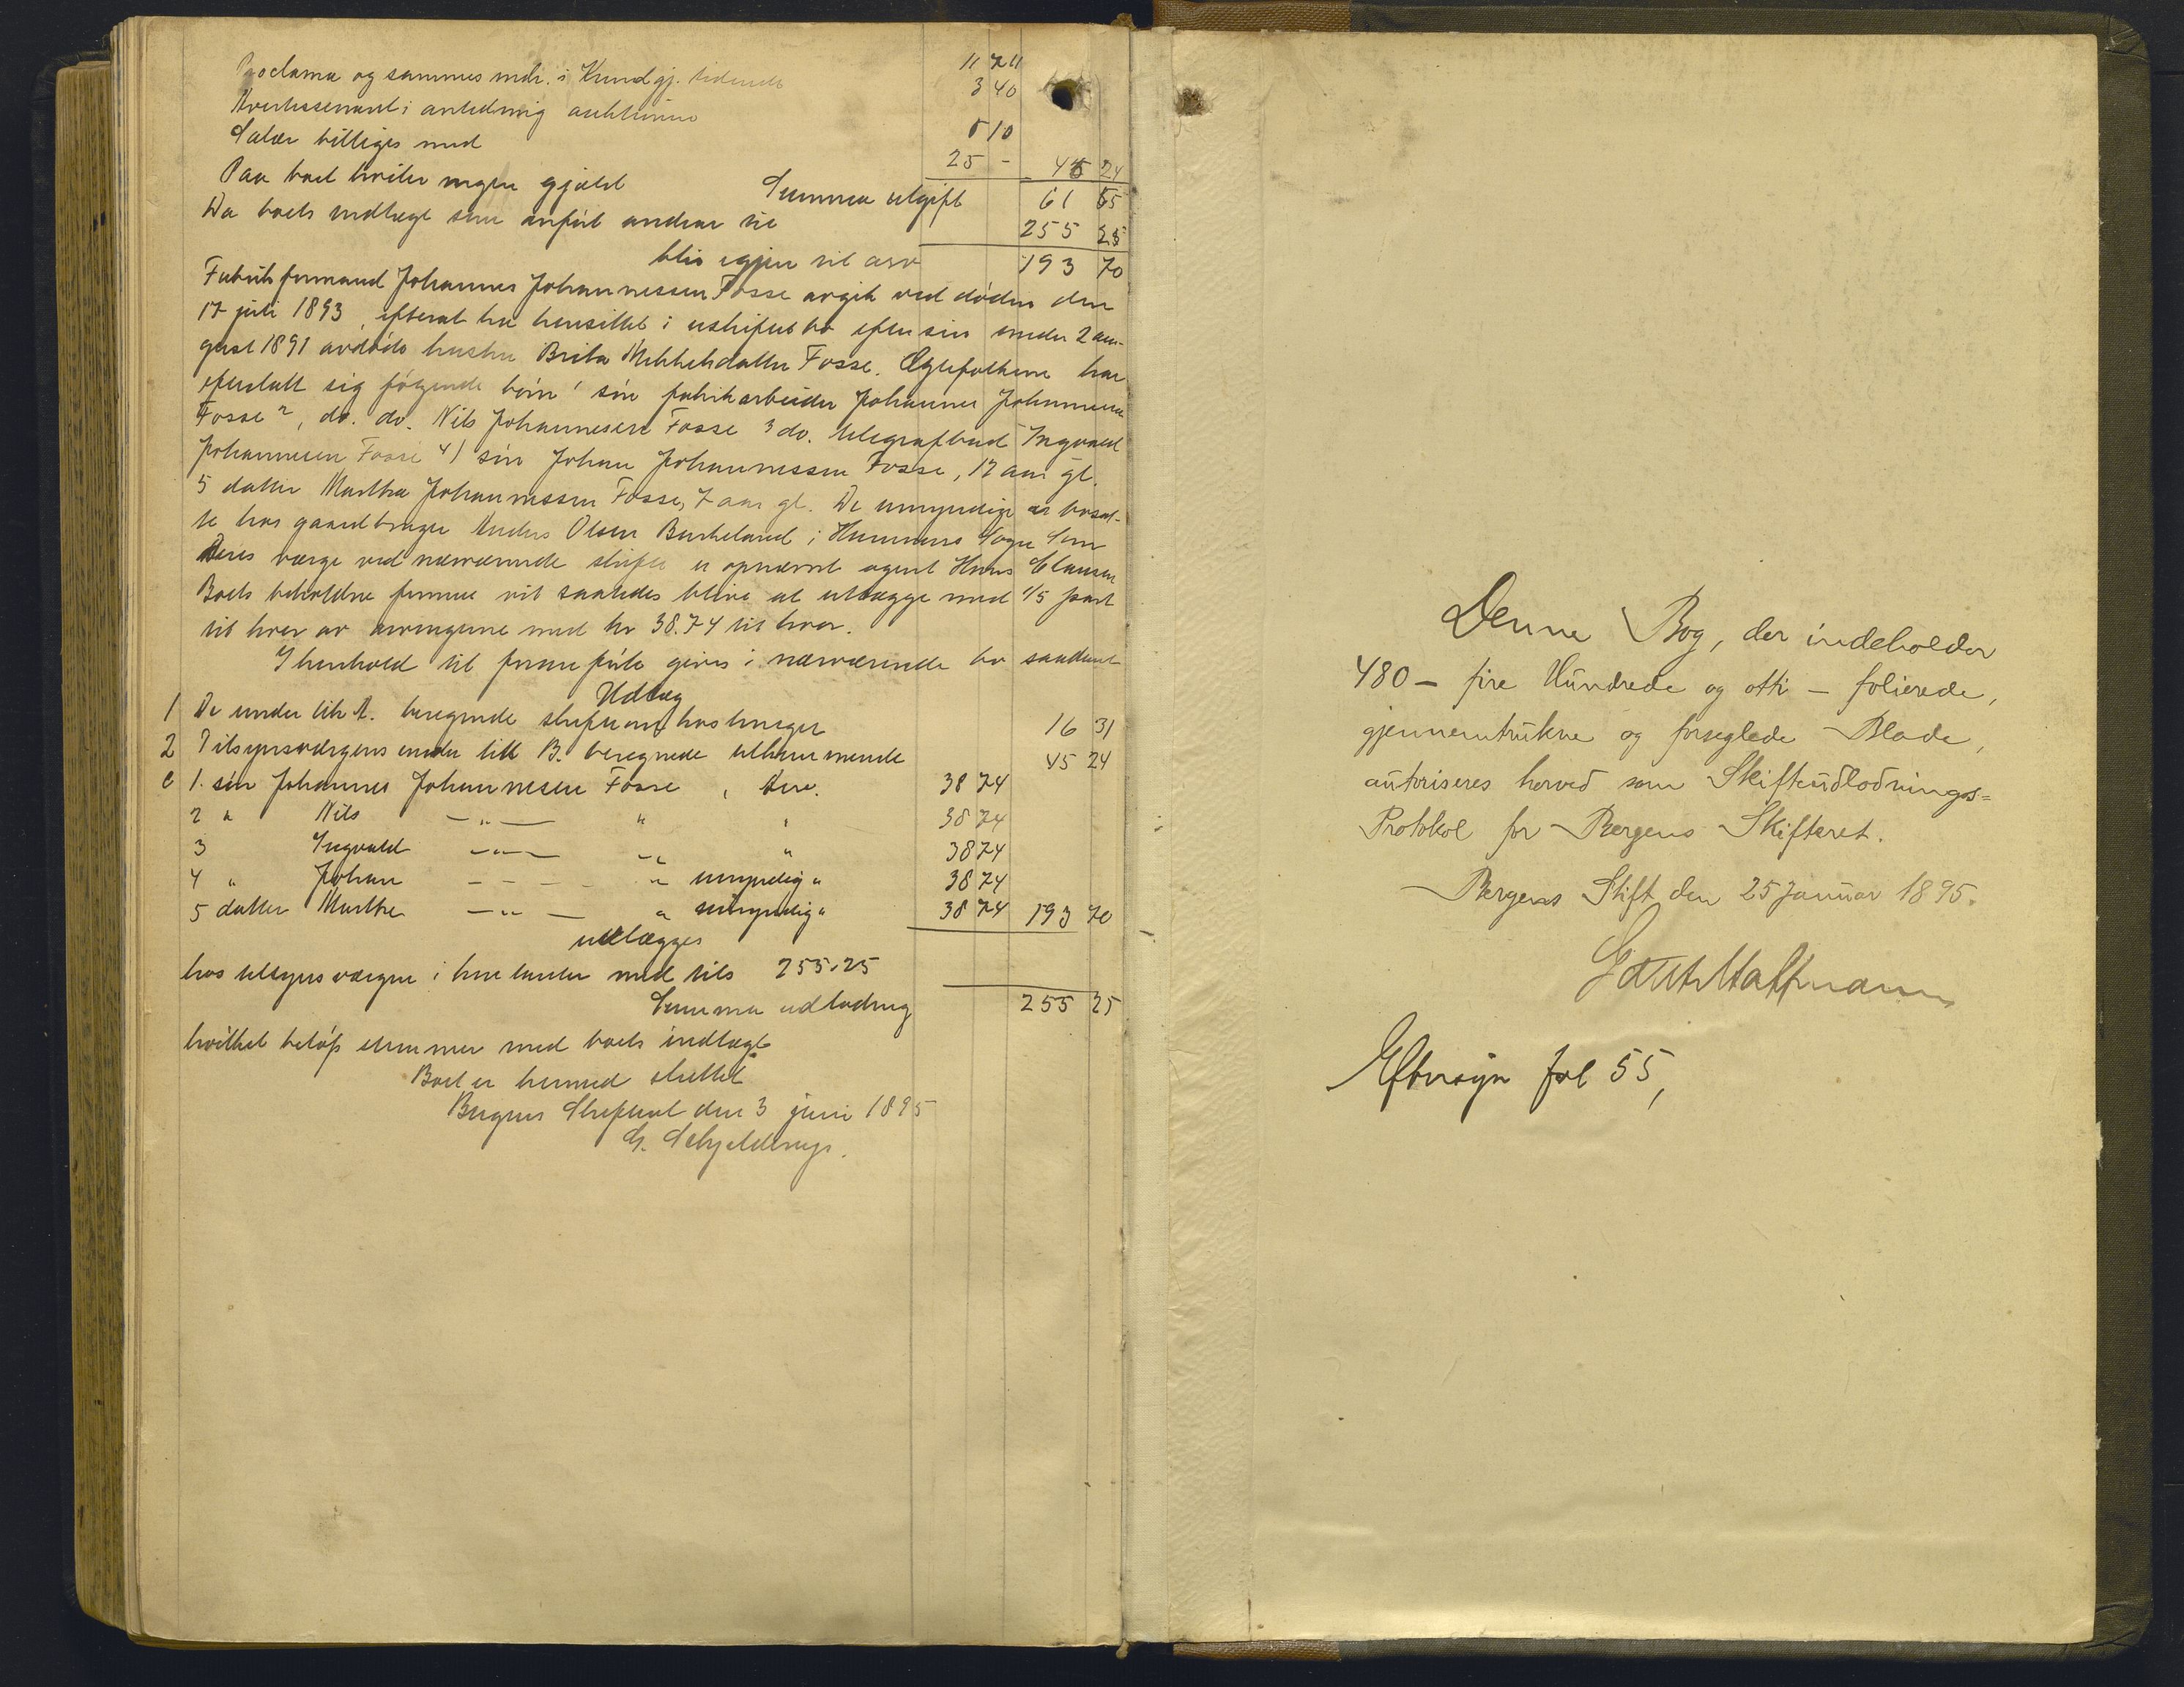 Proclama og sammes indr. i Kundgj. tidende 11 74
Avertissement i anledning auktionen 3 40
Salær billiges med 5 10
25 - 45 24
Paa boet hviler ingen gjæld
Summa utgift 61 55
Da boets indtægt som anført andrar til 255 25
blir igjen til arv 193 70
Fabrikformand Johannes Johannessen Fosse avgik ved døden den
17 juli 1893, efterat ha hensittet i uskiftet bo efter sin under 2 au-
gust 1891 avdøde hustru Brita Mikkelsdatter Fosse. Ægtefolkene har
efterlatt sig følgende børn 1 søn fabrikarbeider Johannes Johannessen
Fosse 2, do. do. Nils Johannesen Fosse 3 do. telegrafbud Ingvald
Johannesen Fosse 4) søn Johan Johannessen Fosse, 12 aar gl.
5 datter Martha Johannessen Fosse, 7 aar gl. De umyndige er bosat-
te hos gaardbruger Anders Olsen Birkeland i Hammers Sogn Som
deres værge ved nærværende skifte er opnævnt agent Hans Clausen
Boets beholdne formue vil saaledes blive at utlægge med 1/5 part
til hver av arvingerne med kr 38.74 til hver.
I henhold til foranførte gives i nærværende bo saadant
Udlæg
1 De under litr A. beregnede skifteomkostninger 16 31
2 Tilsynsværgens under litr B. beregnede utkommende 45 24
C 1. søn Johannes Johannesen Fosse, Arv. 38 74
2 " Nils —"— " " 38 74
3 Ingvald —"— " " 38 74
4 " Johan - - - - " umyndig " 38 74
5 datter Marthe —"— " umyndig " 38 74 193 70
utlægges
hos tilsynsværgen i kontanter med tils 255.25
Summa udlodning 255 25
hvilket beløp stemmer med boets indtægt
Boet er hermed sluttet
Bergens Skifteret den 3 juni 1895
G. Schjelderup.
Denne Bog, der indeholder
480 — fire Hundrede og otti — folierede,
gjennemtrukne og forseglede Blade,
autoriseres herved som Skifteudlodnings=
Protokol for Bergens Skifteret.
Bergens Stift den 25 Januar 1895.
Eftersyn fol 55,